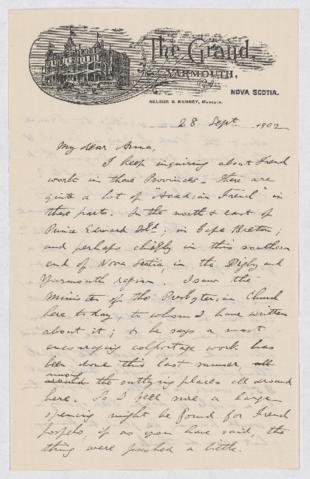 The Grand,
YARMOUTH,
NOVA SCOTIA.
28 Sept 1902
My dear Anna,
I keep inquiring about French
work in these Provinces. There are
quite a lot of "Acadian French" in
these parts. In the north & east of
Prince Edward Isld; in Cape Breton;
and perhaps chiefly in this southern
end of Nova Scotia, in the Digby and
Yarmouth region. I saw the
Minister of the Presbyterian Church
here today, to whom I have written
about it; & he says a most
encouraging colportage work has
been done this last summer
among the outlying places all around
here. So I feel sure a large
opening might be found for French
gospels, if as you have said the
thing were pushed a little.